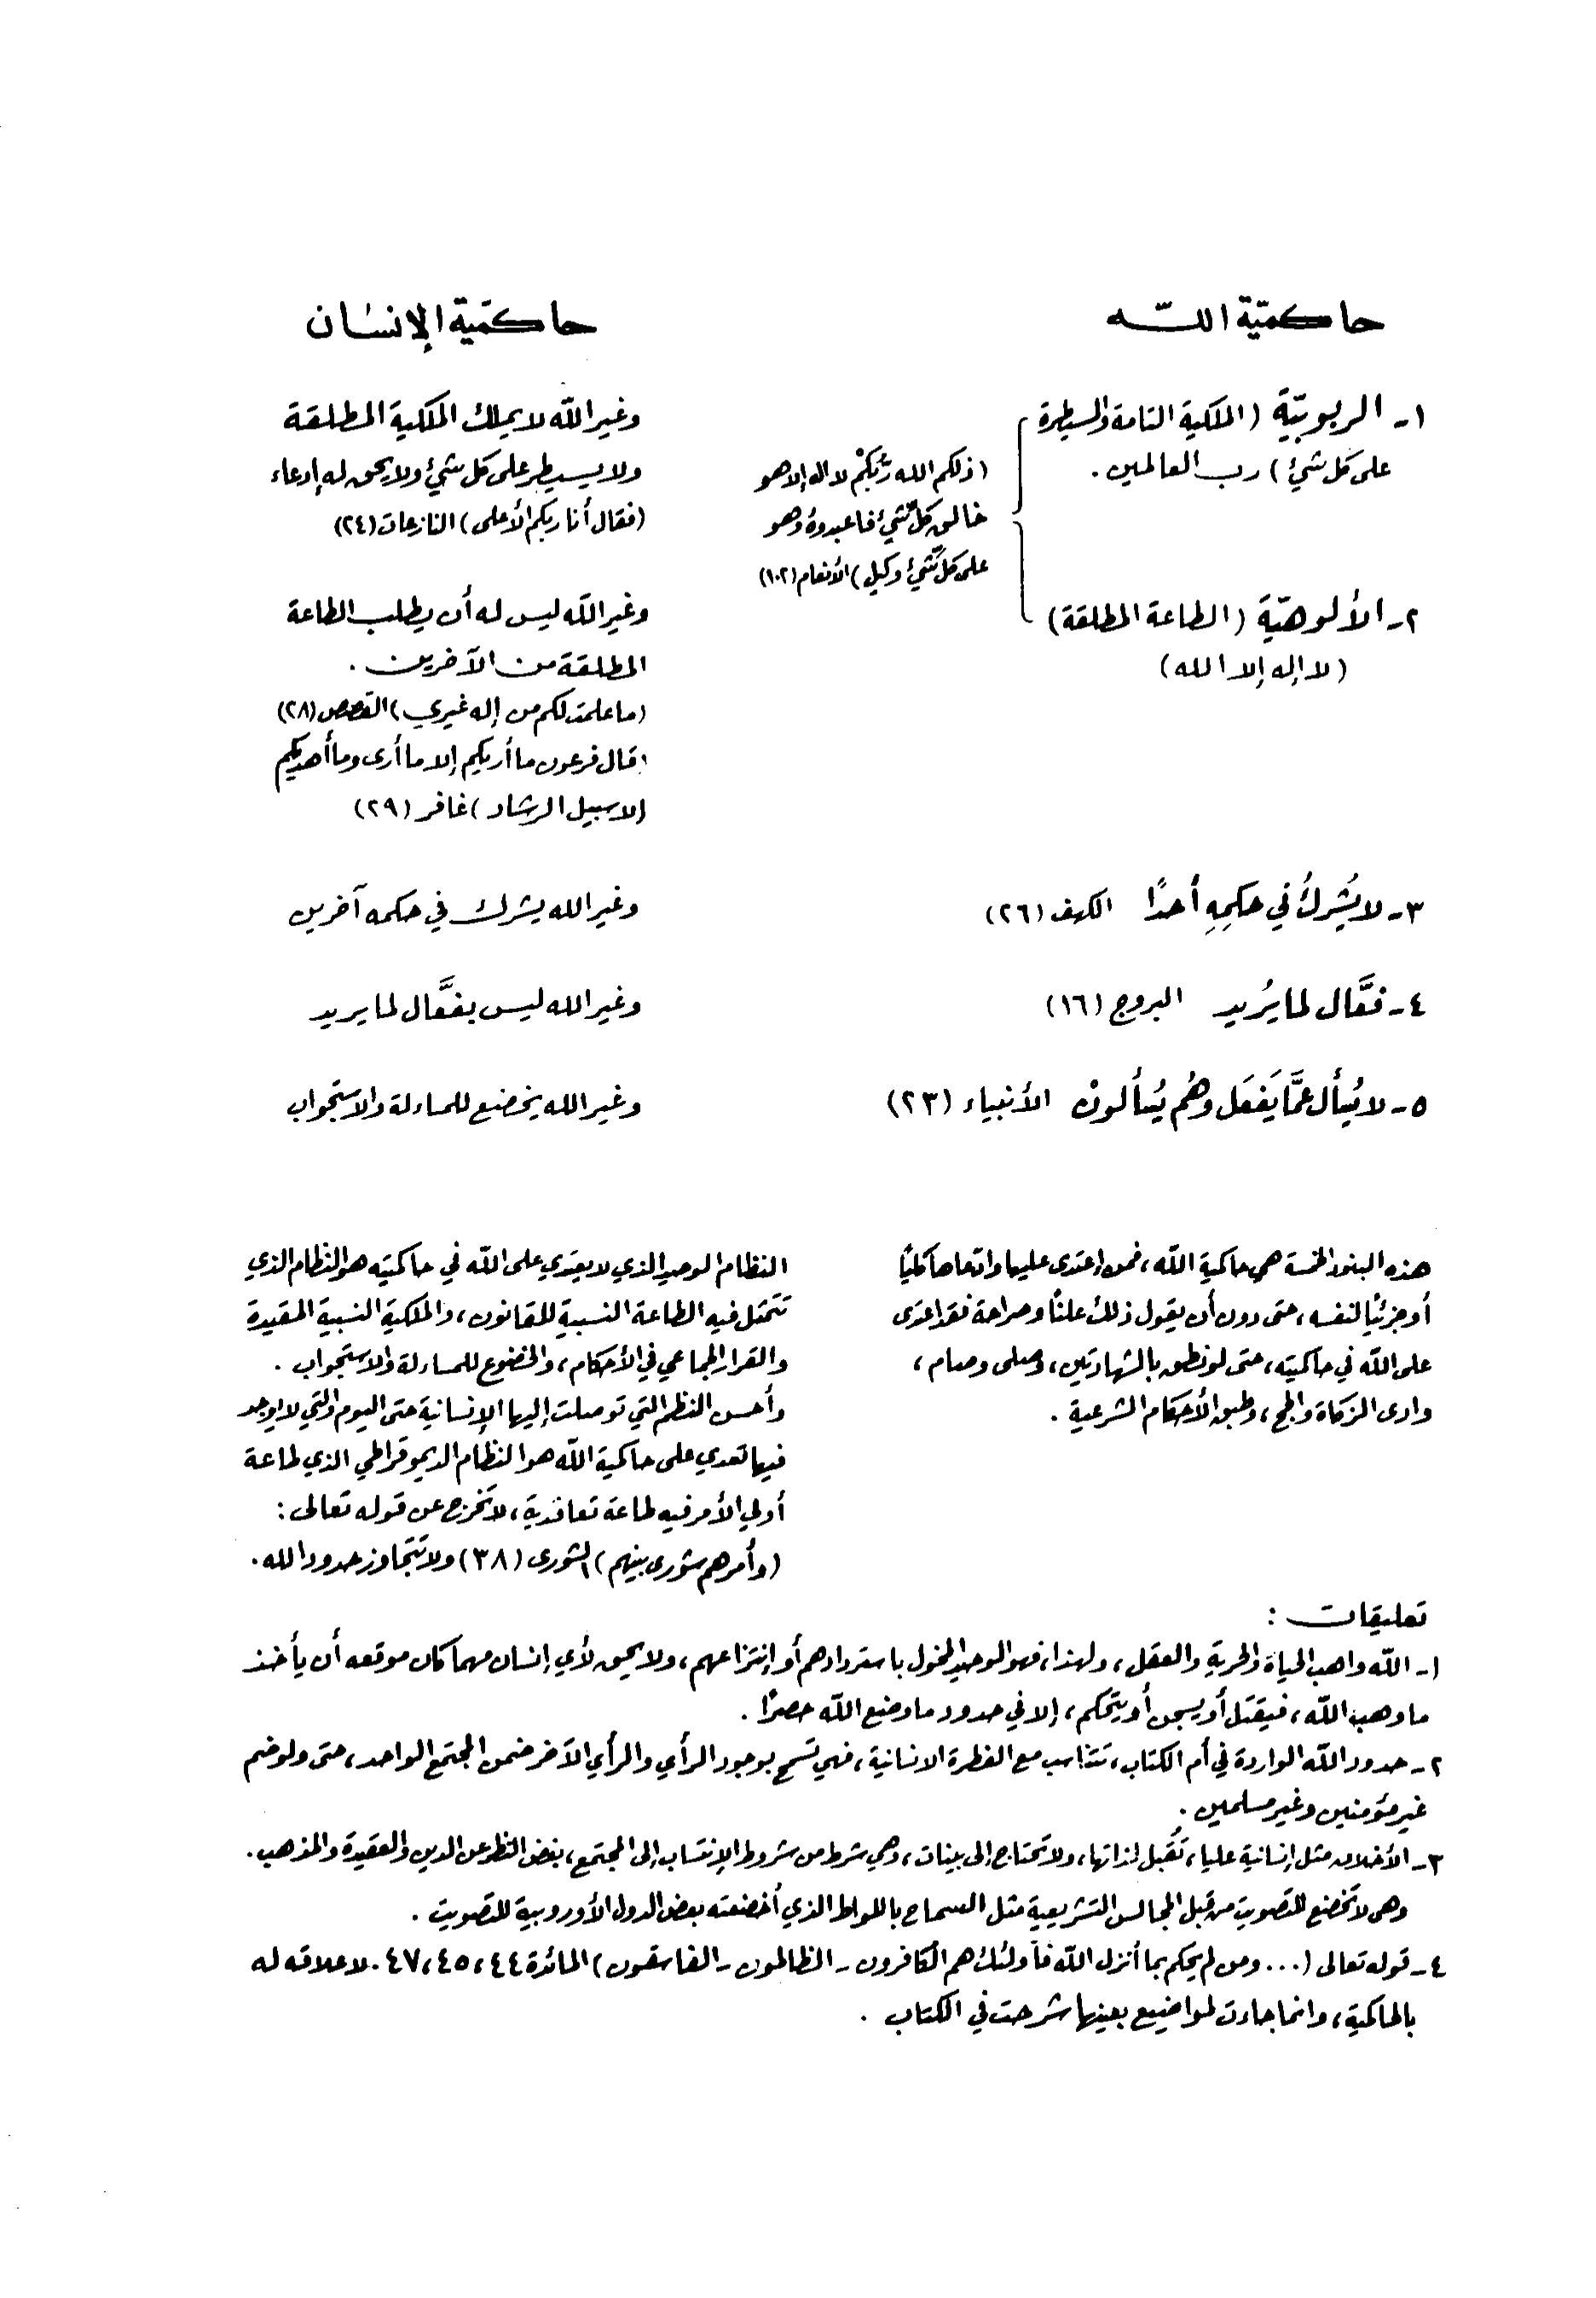 حاكميّة اللـه
١- الربوبيّة (الملكية التامة والسيطرة
على كل شيئ) رب العالمين.
٢- الألوهيّة (الطاعة المطلقة)
(لا إله إلا الله)
(ذلكم الله رَبُّكُمْ لا اله إلا هو
خالق كلِّ شيئ فاعبدوهُ وهو
على كلِّ شيئ وكيل) الأنعام (١٠٢)
٣- لا يُشرِكُ في حكمِهِ أحدًا الكهف (٢٦)
٤- فعَّال لما يُريد البروج (١٦)
٥- لا يُسأل عمَّا يَفعَل وهُم يُسألونْ الأنبياء (٢٣)
حاكميّة الإنسان
وغير اللّه لا يملك الملكية المطلقة
ولا يسيطر على كل شيئ ولا يحق له إدعاء
(فقال أنا ربكم الأعلى) النازعات (٢٤)
وغير اللّه ليس له أن يطلب الطاعة
المطلقة من الآخرين.
(ما علمت لكم من إله غيري) القصص (٢٨)
(قال فرعون ما أريكم إلا ما أرى وما أهديكم
إلا سبيل الرشاد) غافر (٢٩)
وغير الله يشرك في حكمه آخرين
وغير الله ليس بفعَّال لما يريد
وغير الله يخضع للمساءلة والاستجواب
هذه البنود الخمسة هي حاكمية اللّه، فمن إعتدى عليها وادعاها كليًا
أو جزئيًا لنفسه، حتى دون أن يقول ذلك علنًا وصراحة فقد اعتدى
على اللّه في حاكميته، حتى لو نطق بالشهادتين، وصلى وصام،
وادى الزكاة والحج، وطبق الأحكام الشرعية.
النظام الوحيد الذي لا يعتدي على اللّه في حاكميته هو النظام الذي
تتمثل فيه الطاعة النسبية للقانون، والملكية النسبية المقيدة
والقرار الجماعي في الأحكام، والخضوع للمساءلة والاستجواب.
وأحسن النظم التي توصلت إليها الإنسانية حتى اليوم والتي لا يوجد
فيها تعدي على حاكمية اللّه هو النظام الديموقراطي الذي طاعة
أولي الأمر فيه طاعة تعاقدية، لا تخرج عن قوله تعالى:
(وأمرهم شورى بينهم) الشورى (٣٨) ولا تتجاوز حدود الله.
تعليقات:
١- اللّه واهب الحياة والحرية والعقل، ولهذا، فهو الوحيد المخول باستردادهم أو إنتزاعهم، ولا يحق لأي إنسان مهما كان موقعه أن يأخذ
ما وهب اللّه، فيقتل أو يسجن أو يتحكم، إلا في حدود ما وضع اللّه حصرًا.
٢- حدود اللّه الواردة في أم الكتاب، تتناسب مع الفطرة الانسانية، فهي تسمح بوجود الرأي والرأي الآخر ضمن المجتمع الواحد، حتى ولو ضم
غير مؤمنين وغير مسلمين.
٣- الأخلاق مثل إنسانية عليا، تُقبل لذاتها، ولا تحتاج إلى بينات، وهي شرط من شروط الإنتساب إلى المجتمع، بغض النظر عن الدين والعقيدة والمذهب.
وهي لا تخضع للتصويت من قبل المجالس التشريعية مثل السماح باللواط الذي أخضعته بعض الدول الأوروبية للتصويت.
٤- قوله تعالى (... ومن لم يحكم بما أنزل اللّه فأولئك هم الكافرون - الظالمون - الفاسقون) المائدة ٤٤، ٤٥، ٤٧. لا علاقه له
بالحاكمية، وانما جاءت لمواضيع بعينها شرحت في الكتاب.